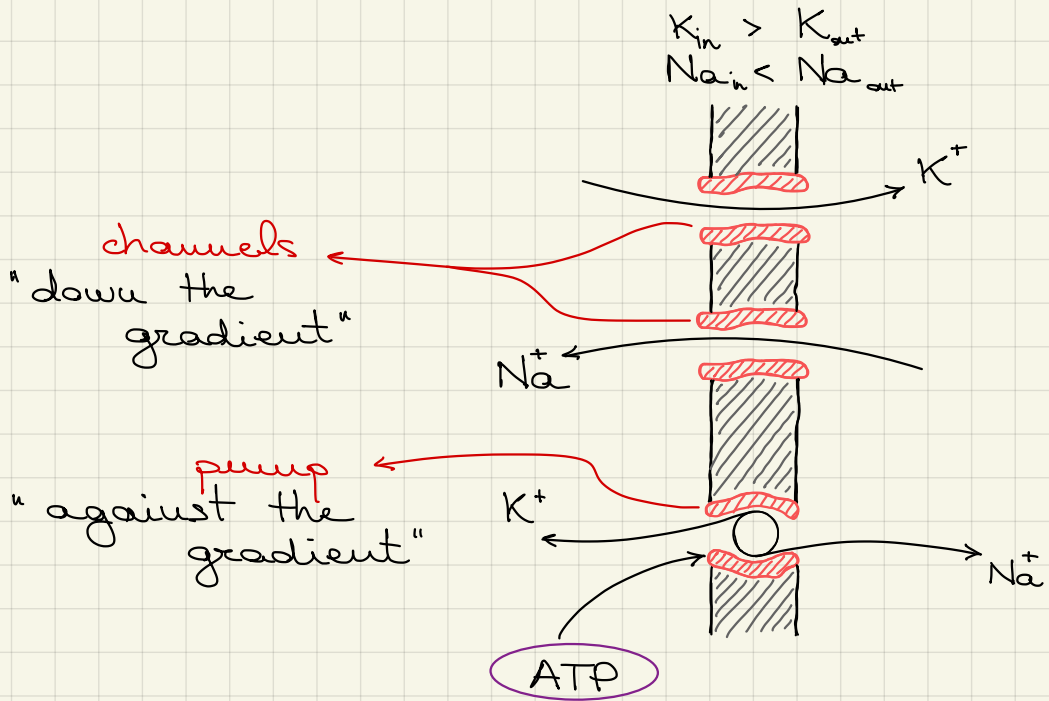 K_in > K_out
Na_in < Na_out
K⁺
channels
"down the
gradient"
Na⁺
pump
"against the
gradient"
K⁺
Na⁺
ATP